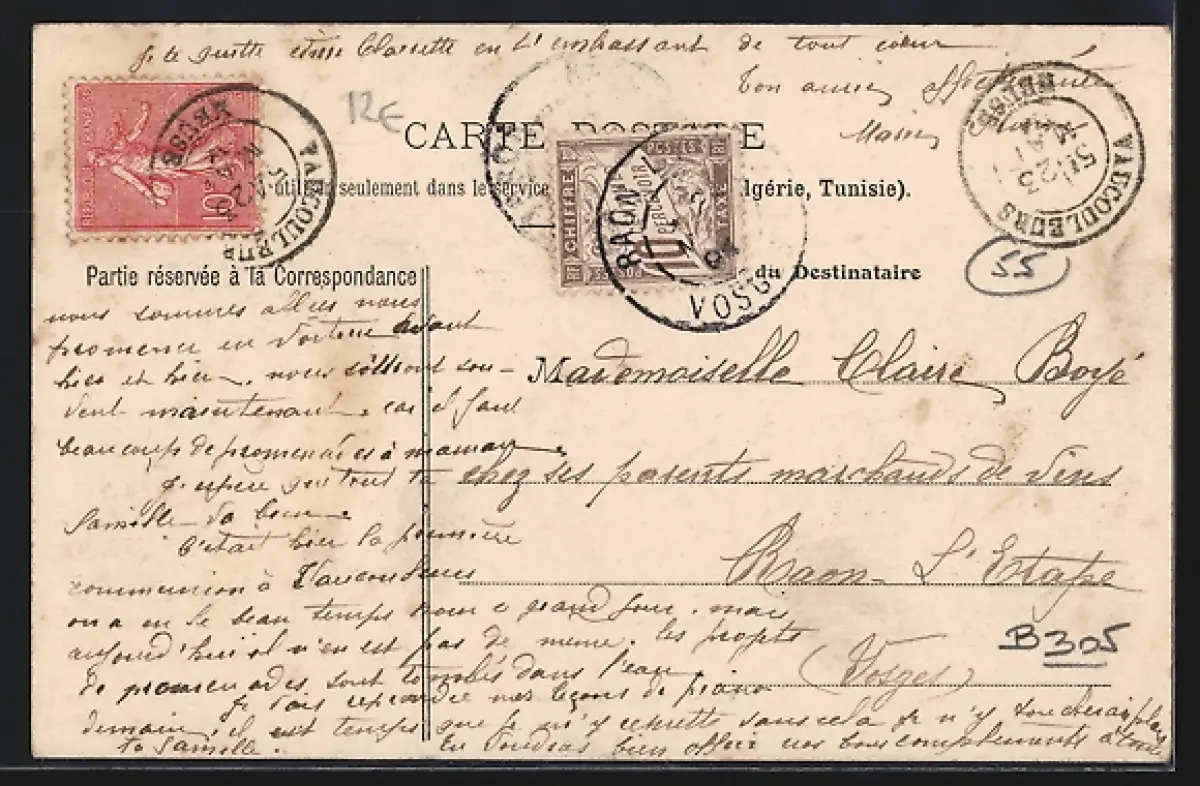 Je te quitte chère Clairette en t'embrassant de tout cœur
Ton amie affectionnée
12€
CARTE POSTALE
seulement dans le service
lgérie, Tunisie).
10c
CHIFFRE
TAXE
POSTES
10
PERCEVOIR
RAON
VOSG
VAUCOULEURS
MEUSE
23
VAUCOULEURS
MEUSE
55
Partie réservée à la Correspondance
du Destinataire
nous sommes allées nous
promener en voiture avant
hier et hier, nous sortons sou-
vent maintenant, car il faut
beaucoup de promenades à maman.
J'espère que toute ta
famille va bien.
C'était hier la première
communion à Vaucouleurs
on a eu le beau temps pour ce grand jour, mais
aujourd'hui il n'en est pas de même, les projets
de promenades sont tombés dans l'eau.
Je vais reprendre mes leçons de piano
demain, il est temps que je m'y remette sans cela je n'y toucherai plus
Tu voudras bien offrir nos bons compliments à toute
ta famille.
Mademoiselle Claire Boyé
chez ses parents marchands de vins
Raon-L'Etape
(Vosges)
B305